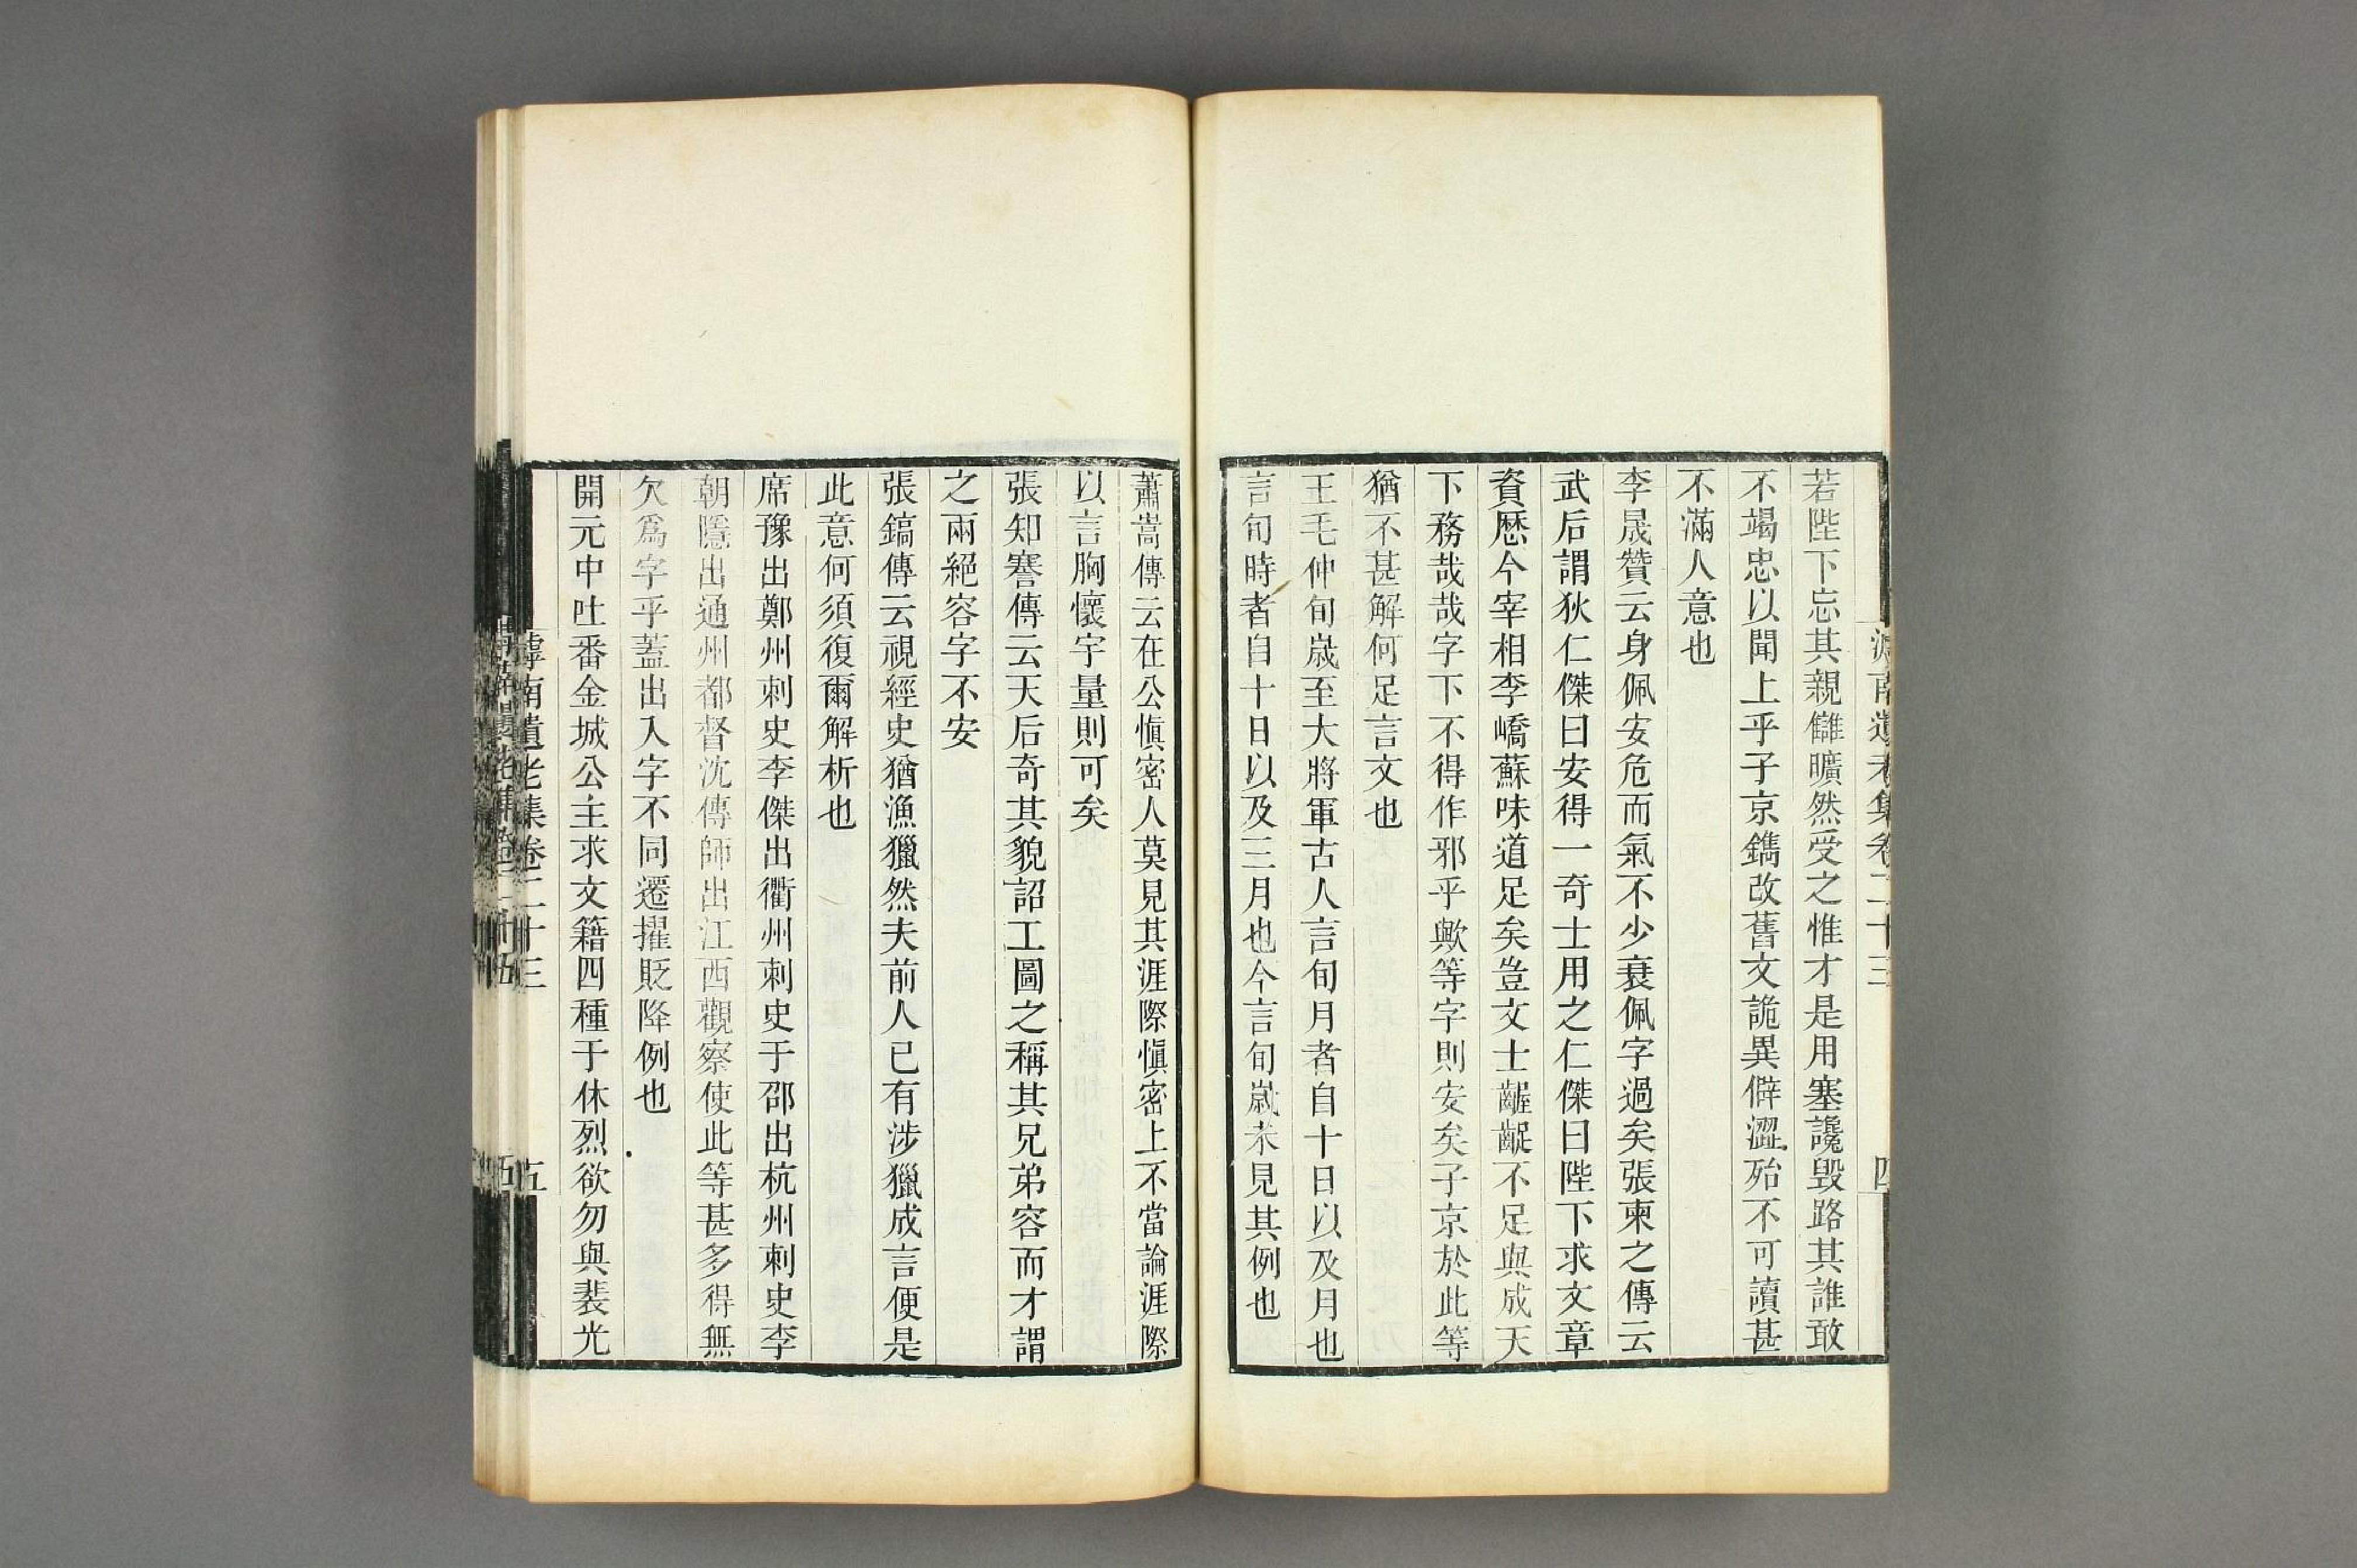 滹南遺老集卷二十三 四
若陛下忘其親讎曠然受之惟才是用塞讒毁路其誰敢
不竭忠以聞上乎子京鐫改舊文詭異僻澀殆不可讀甚
不滿人意也
李晟贊云身佩安危而氣不少衰佩字過矣張柬之傳云
武后謂狄仁傑曰安得一奇士用之仁傑曰陛下求文章
資厯今宰相李嶠蘇味道足矣豈文士齷齪不足與成天
下務哉哉字下不得作邪乎歟等字則安矣子京於此等
猶不甚解何足言文也
王毛仲旬歲至大將軍古人言旬月者自十日以及月也
言旬時者自十日以及三月也今言旬歲未見其例也
蕭嵩傳云在公愼密人莫見其涯際愼密上不當論涯際
以言胸懷宇量則可矣
張知謇傳云天后奇其貌詔工圖之稱其兄弟容而才謂
之兩絕容字不安
張鎬傳云視經史猶漁獵然夫前人已有涉獵成言便是
此意何須復爾解析也
席豫出鄭州刺史李傑出衢州刺史于邵出杭州刺史李
朝隱出通州都督沈傳師出江西觀察使此等甚多得無
欠爲字乎蓋出入字不同遷擢貶降例也
開元中吐番金城公主求文籍四種于休烈欲勿與裴光
滹南遺老集卷二十三 五